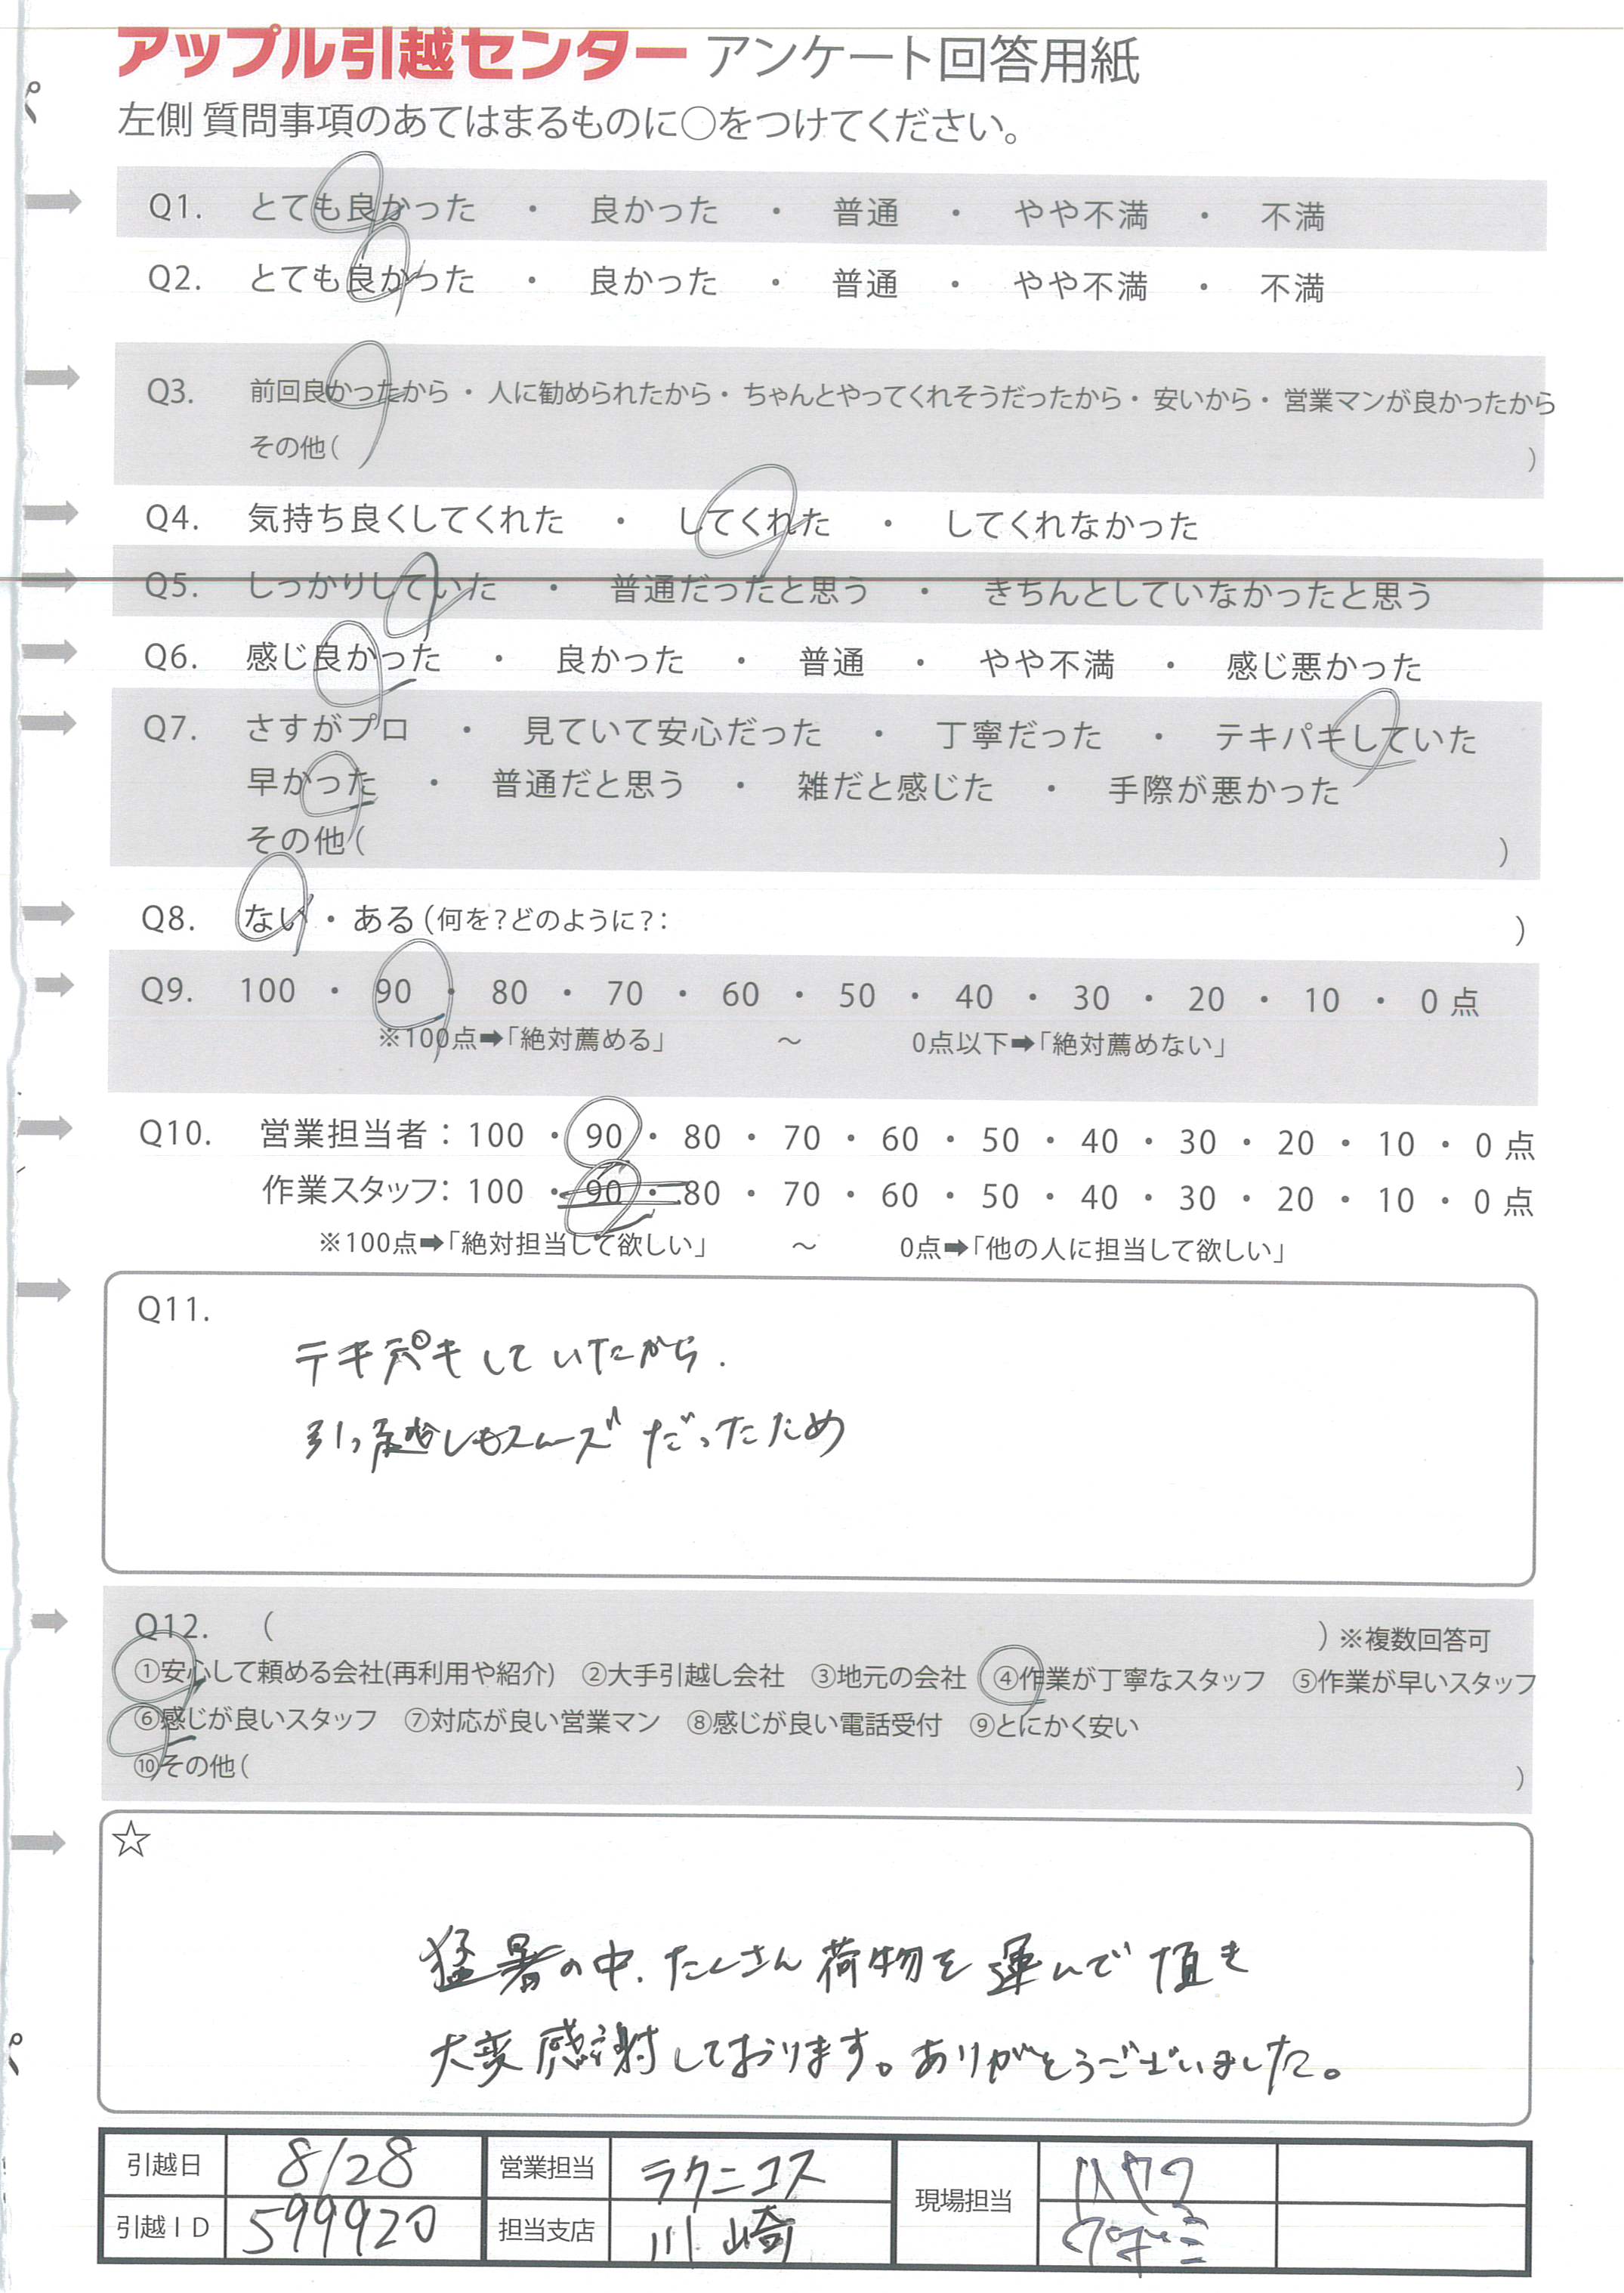 アップル引越センター アンケート回答用紙
左側 質問事項のあてはまるものに○をつけてください。
Q1. とても良かった ・ 良かった ・ 普通 ・ やや不満 ・ 不満
Q2. とても良かった ・ 良かった ・ 普通 ・ やや不満 ・ 不満
Q3. 前回良かったから・ 人に勧められたから・ ちゃんとやってくれそうだったから・ 安いから・ 営業マンが良かったから
その他( )
Q4. 気持ち良くしてくれた ・ してくれた ・ してくれなかった
Q5. しっかりしていた ・ 普通だったと思う ・ きちんとしていなかったと思う
Q6. 感じ良かった ・ 良かった ・ 普通 ・ やや不満 ・ 感じ悪かった
Q7. さすがプロ ・ 見ていて安心だった ・ 丁寧だった ・ テキパキしていた
早かった ・ 普通だと思う ・ 雑だと感じた ・ 手際が悪かった
その他( )
Q8. ない ・ ある (何を?どのように?: )
Q9. 100 ・ 90 ・ 80 ・ 70 ・ 60 ・ 50 ・ 40 ・ 30 ・ 20 ・ 10 ・ 0 点
※100点➡「絶対薦める」 ～ 0点以下➡「絶対薦めない」
Q10. 営業担当者：100 ・ 90 ・ 80 ・ 70 ・ 60 ・ 50 ・ 40 ・ 30 ・ 20 ・ 10 ・ 0 点
作業スタッフ：100 ・ 90 ・ 80 ・ 70 ・ 60 ・ 50 ・ 40 ・ 30 ・ 20 ・ 10 ・ 0 点
※100点➡「絶対担当して欲しい」 ～ 0点➡「他の人に担当して欲しい」
Q11.
テキパキしていたから.
引っ越しもスムーズだったため
Q12. ( ) ※複数回答可
①安心して頼める会社(再利用や紹介) ②大手引越し会社 ③地元の会社 ④作業が丁寧なスタッフ ⑤作業が早いスタッフ
⑥感じが良いスタッフ ⑦対応が良い営業マン ⑧感じが良い電話受付 ⑨とにかく安い
⑩その他( )
☆
猛暑の中、たくさん荷物を運んで頂き
大変感謝しております。ありがとうございました。
引越日 8/28 営業担当 ラクニコス 現場担当
引越ID 599920 担当支店 川崎